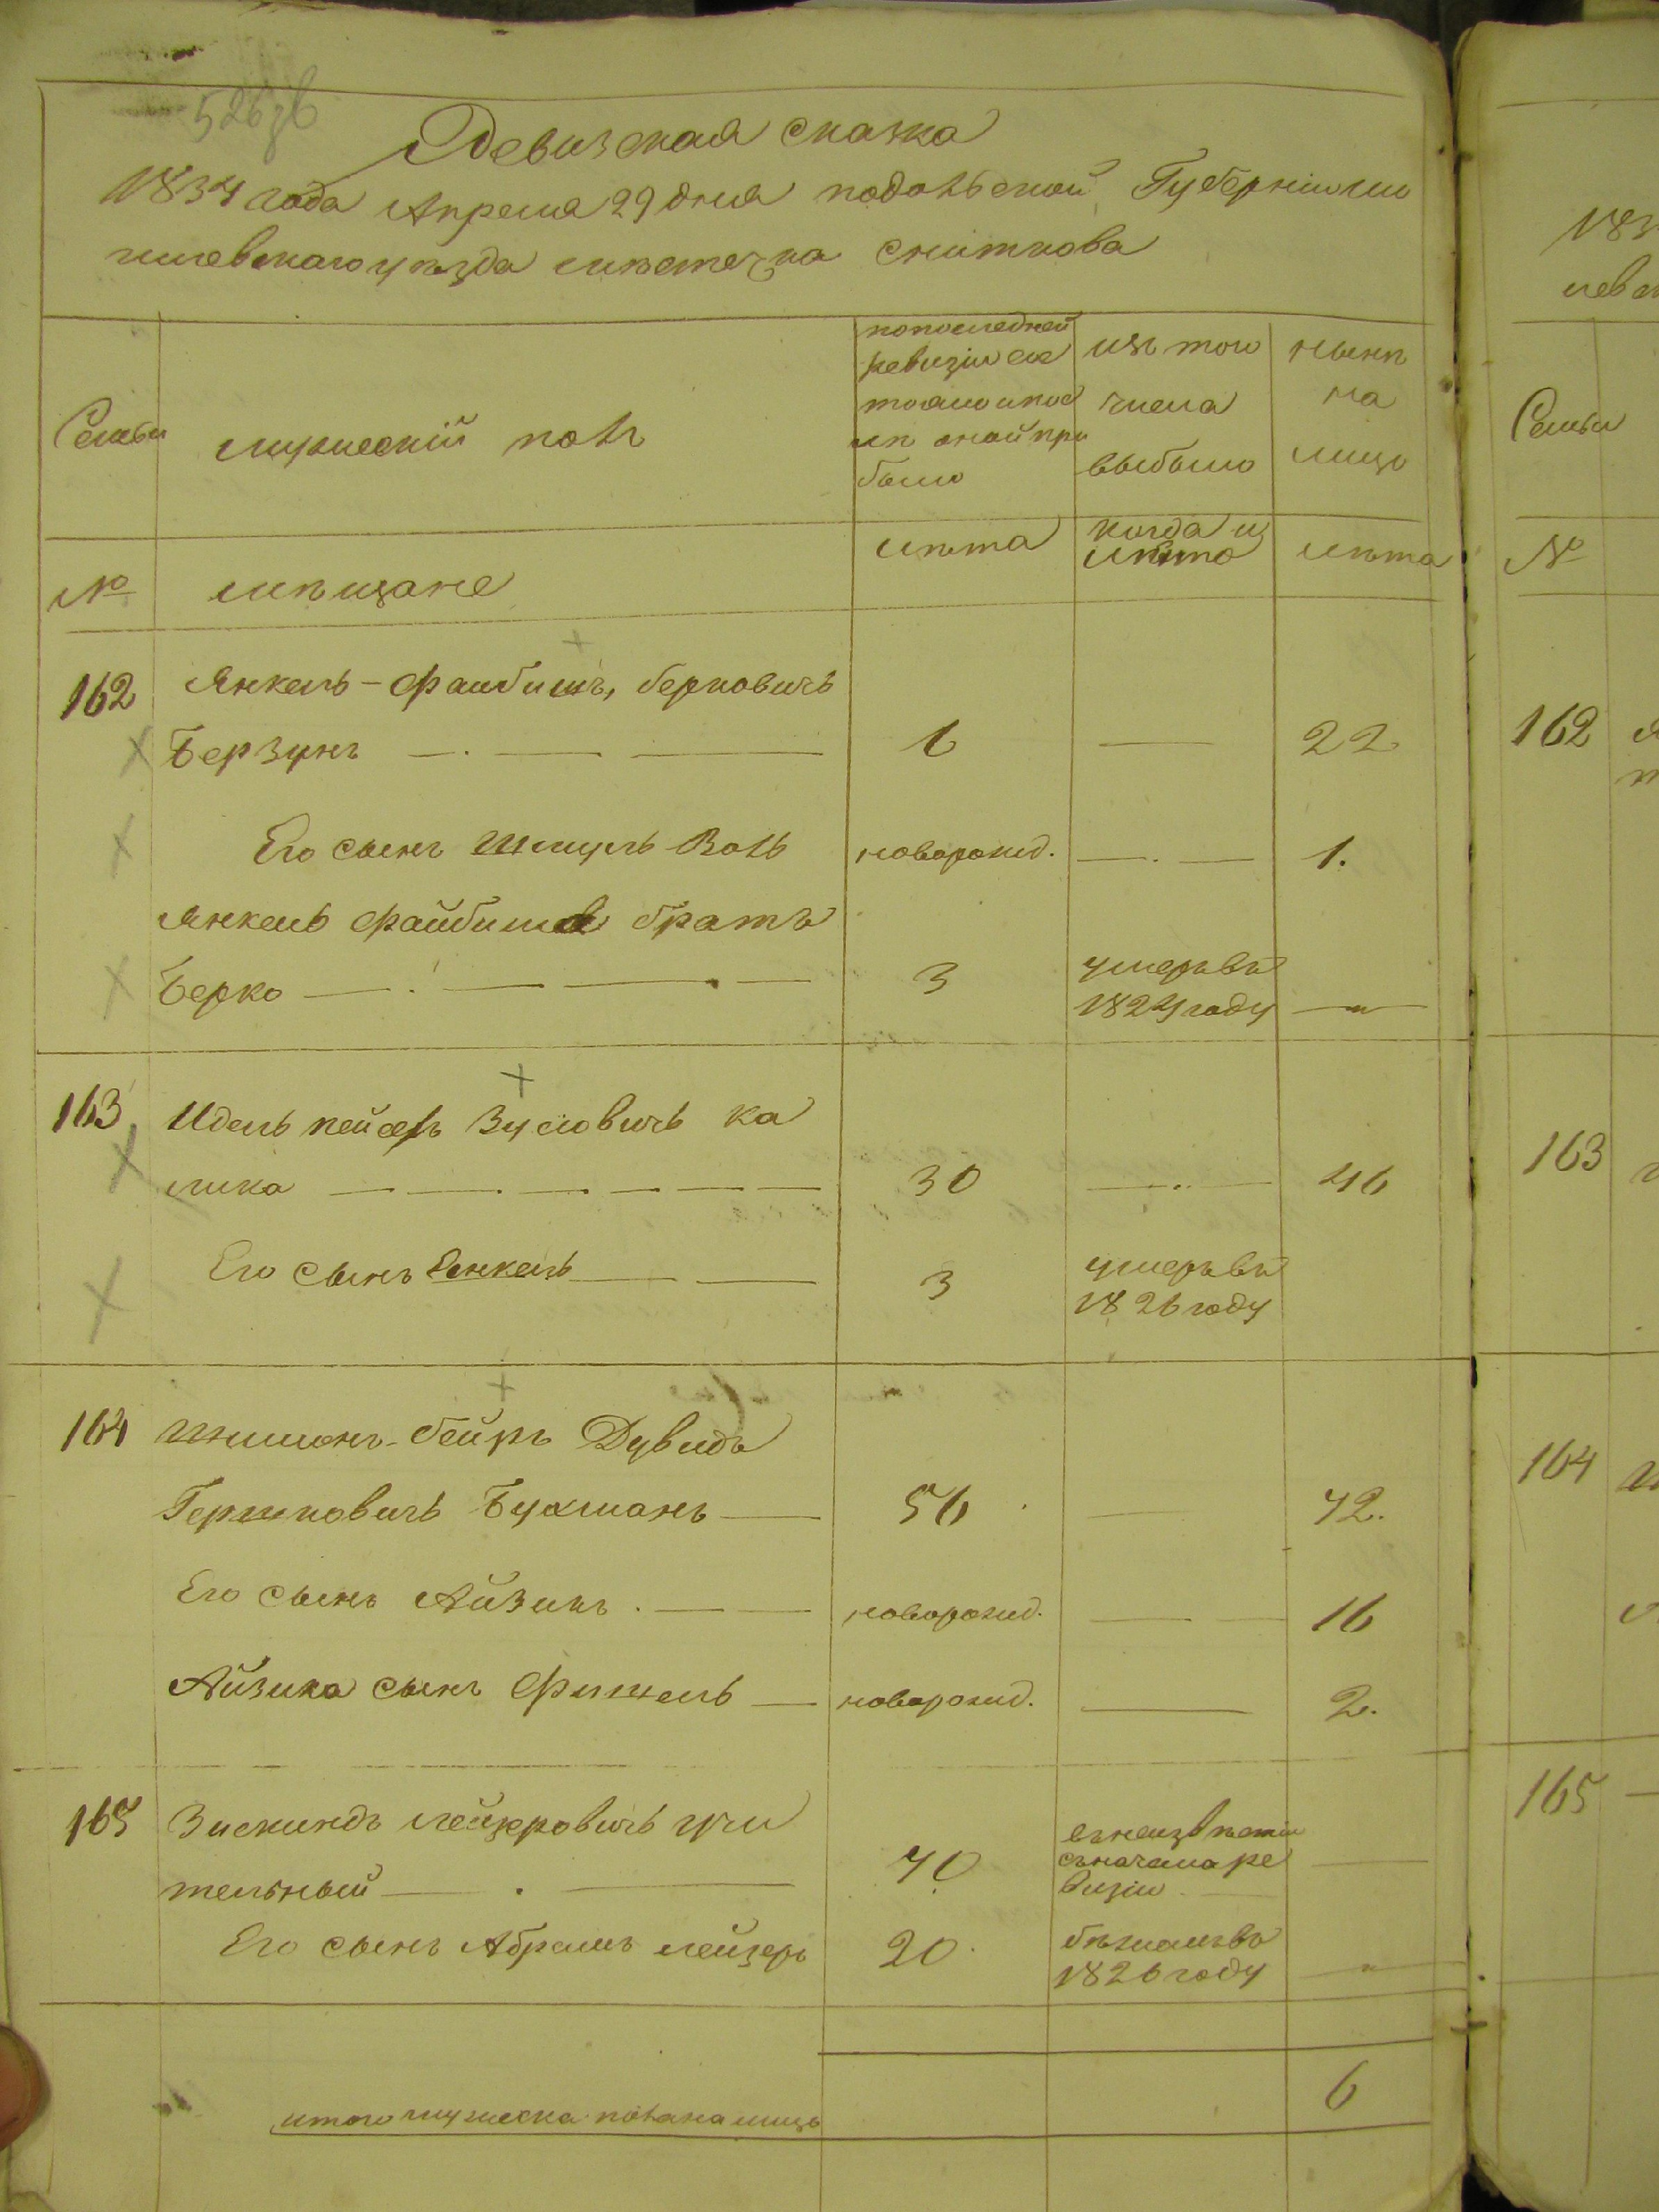 526зв
Ревизская сказка
1834 года Апреля 29 дня подольской Губерніи мо
гилевского уѣзда мѣстечка сниткова
Семьи
мужескій полъ
попоследней
ревизіи со
стояло и пос
лѣ оной при
было
изъ того
числа
выбыло
нынѣ
на
лицо
№
мѣщане
лѣта
когда и
лѣта
162
Янкель-Файбишъ, берковичъ
Берзунъ
6
22
Его сынъ Шмуль Воль
новорожд.
1.
Янкель Файбиша братъ
Берко
3
умеръ въ
1824 году
163
Идель пейсехъ Зусловичъ ка
лика
30
46
Его сынъ Енкель
3
умеръ въ
1826 году
164
Шимонъ-бейръ Дувидъ
Гершковичъ Бухманъ
56
72.
Его сынъ Айзикъ
новорожд.
16
Айзика сынъ Фишель
новорожд.
2.
165
Зискиндъ лейзеровичъ учи
тельный
70
въ неизвѣстіи
съ начала ре
визіи
Его сынъ Абрамъ лейзеръ
20
бѣжалъ въ
1826 году
итого мужеска пола на лицо
6
183
лев
Семьи
№
162
163
164
165